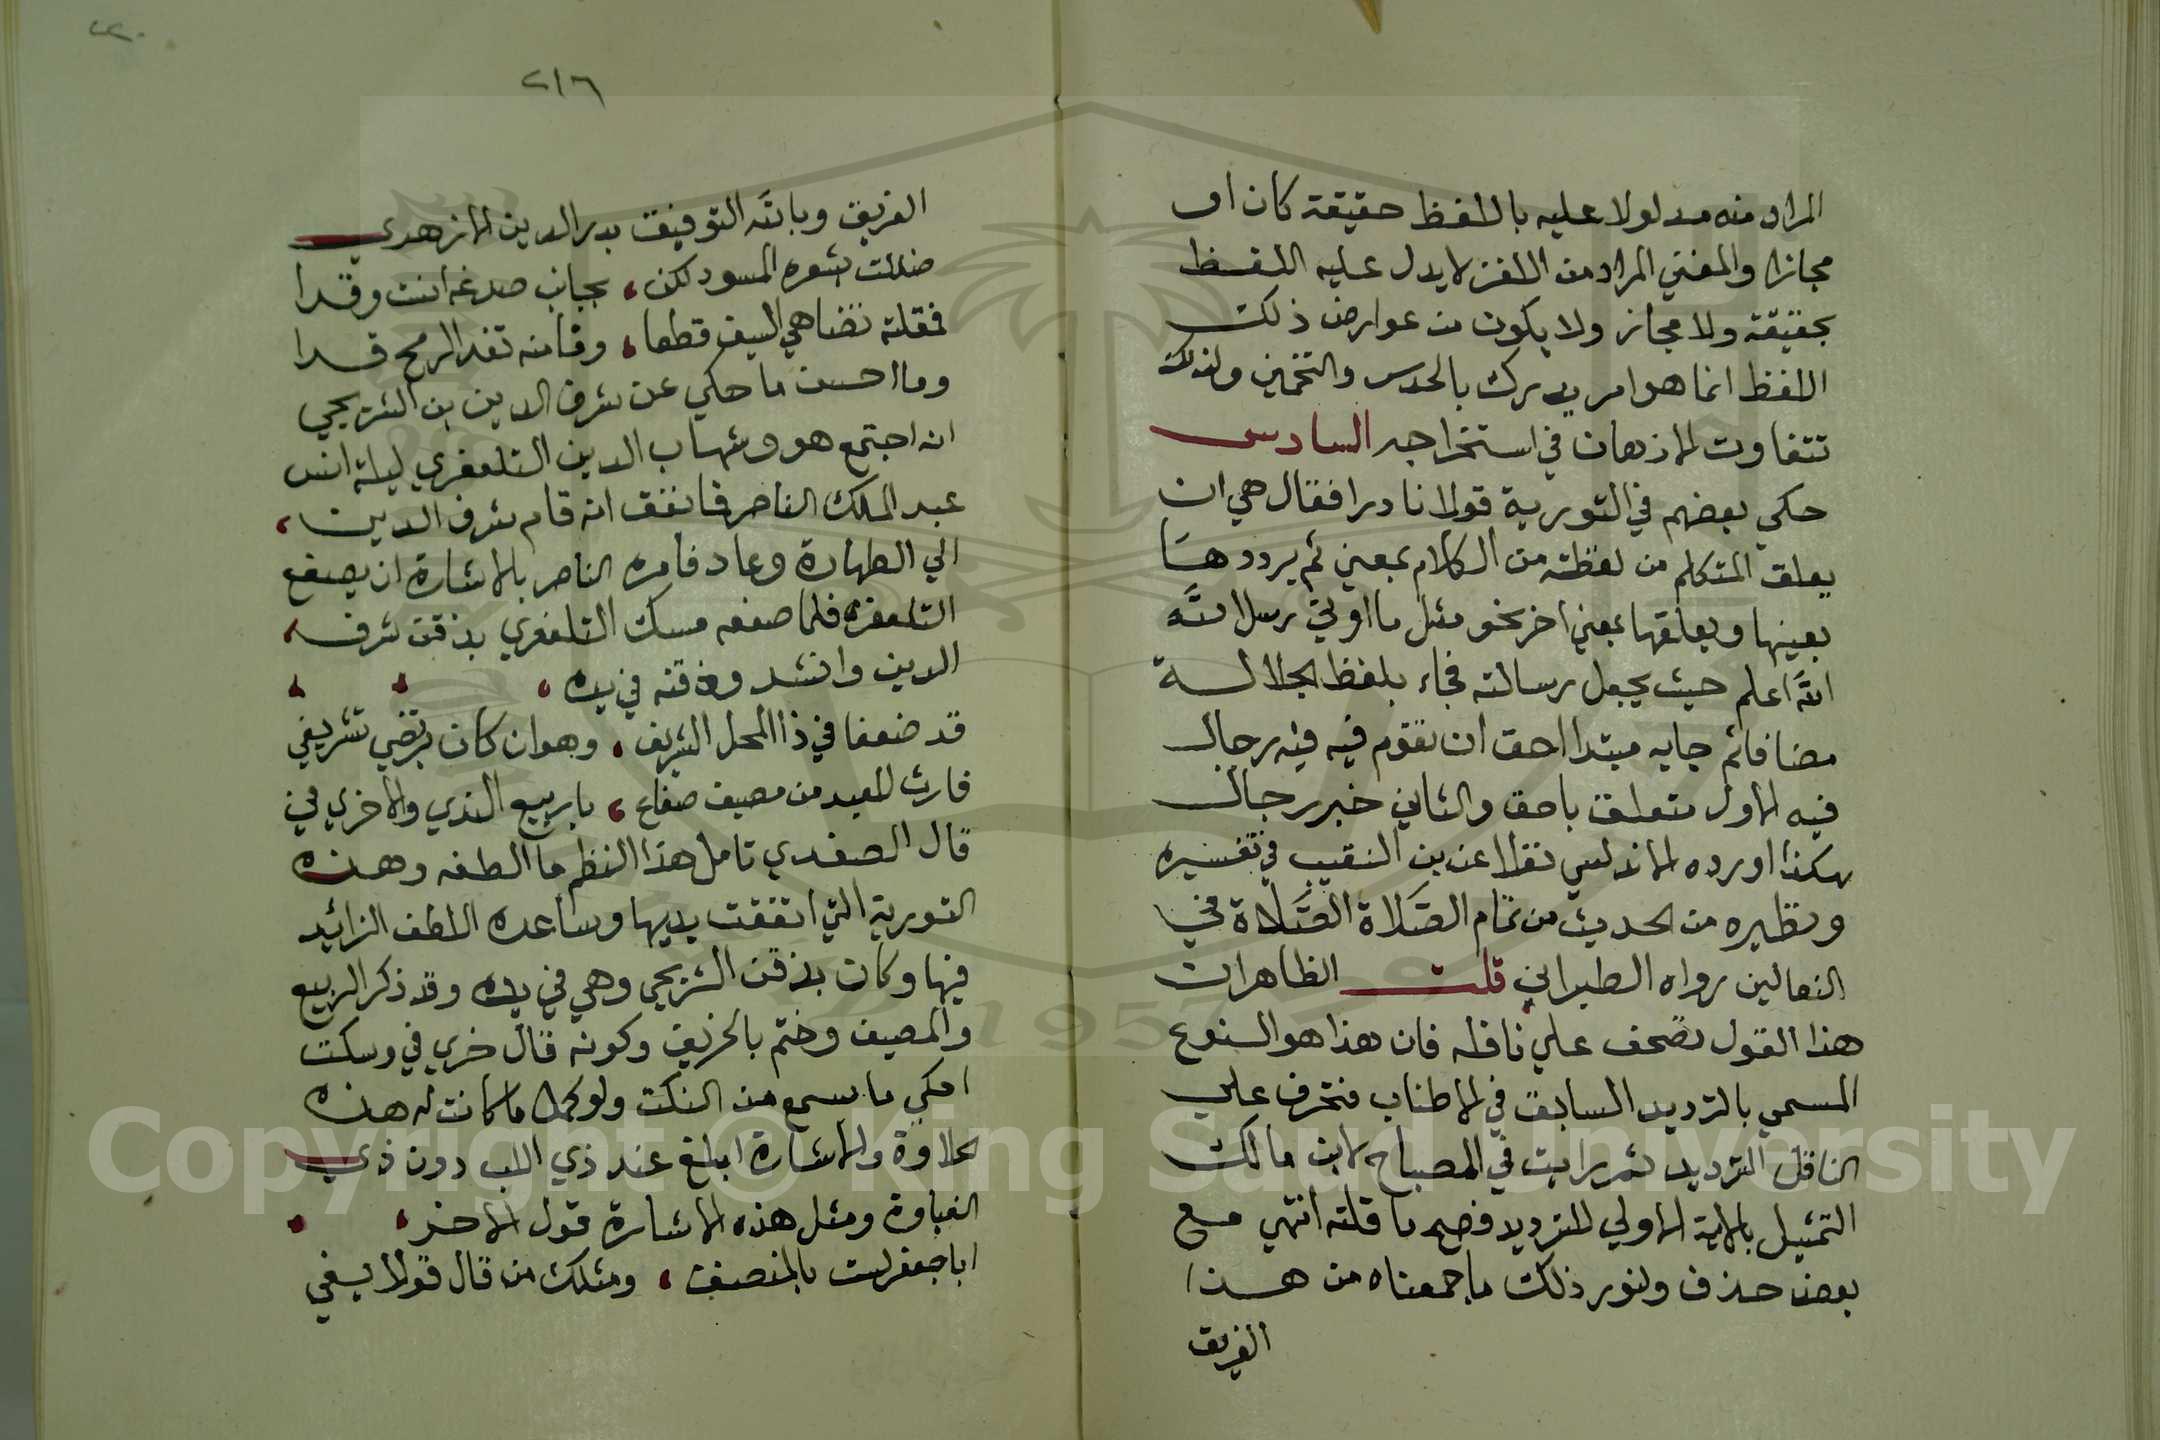 المراد منه مدلولا عليه باللفظ حقيقة كان او
مجازا والمعني المراد من اللغز لا يدل عليه اللفظ
بحقيقة ولا مجاز ولا يكون من عوارض ذلك
اللفظ انما هو امر يدرك بالحدس والتخمين ولذلك
تتفاوت الاذهان في استخراجه السادس
حكي بعضهم في التورية قولا نادرا فقال هي ان
يعلق المتكلم من لفظته من الكلام بمعني ثم يرددها
بعينها ويعلقها بمعني اخر نحو مثل ما اوتي رسل الله
الله اعلم حيث يجعل رسالته فجاء بلفظ الجلالة
مضافا ثم جابه مبتدا احق ان تقوم فيه فيه رجال
فيه الاول متعلق باحق والثاني خبر رجال
هكذا اورده الاندلسي نقلا عن بن النقيب في تفسيره
ونظيره من الحديث من تمام الصلاة الصلاة في
النعالين رواه الطبراني قلت الظاهر ان
هذا القول تصحف علي ناقله فان هذا هو النوع
المسمي بالترديد السابق في الاطناب فتحرف علي
الناقل الترديد ثم رايت في المصباح لابن مالك
التمثيل بالاية الاولي للترديد فصح ما قلته انتهي مع
بعض حذف ولنور ذلك ما جمعناه من هذا
الفريق
٢١٦
الفريق وبالله التوفيق بدر الدين الازهدي
ضللت بشعره المسود لكن ، بجانب صدغه انت وقدا
فمقلته تضاهي السيف قطعا ، وقامته تقد الرمح قدا
وما احسن ما حكي عن شرف الدين بن الشريجي
انه اجتمع هو وشهاب الدين التلعفري ليلة انس
عبد الملك الناصر فاتفق انه قام شرف الدين ،
الي الطهارة وعاد فامره الناصر بالاشارة ان يصفع
التلعفره فلما صفعه مسك التلعفري بذقن شرف ،
الدين وانشد وذقنه في يده ،
قد صفعنا في ذا المحل الشريف ، وهو ان كان يرتضي تشريفي
فارث للعبد من مصيف صفاع ، يا ربيع الندي والا خري في
قال الصفدي تامل هذا النظم ما الطفه وهذه
التورية التي اتفقت بديها وساعده اللطف الزائد
فيها وكان بذقن الشريجي وهي في يده وقد ذكر الربيع
والمصيف وختم بالخريف وكونه قال خري في وسكت
احكي ما يسمع من النكت ولو كمل ما كانت له هذه
الحلاوة والاشارة ابلغ عند ذي اللب دون ذي
الغباوة ومثل هذه الاشارة قول الاخر ،
ابا جعفر لست بالمنصف ، ومثلك من قال قولا يفي
Copyright © King Saud University
1957